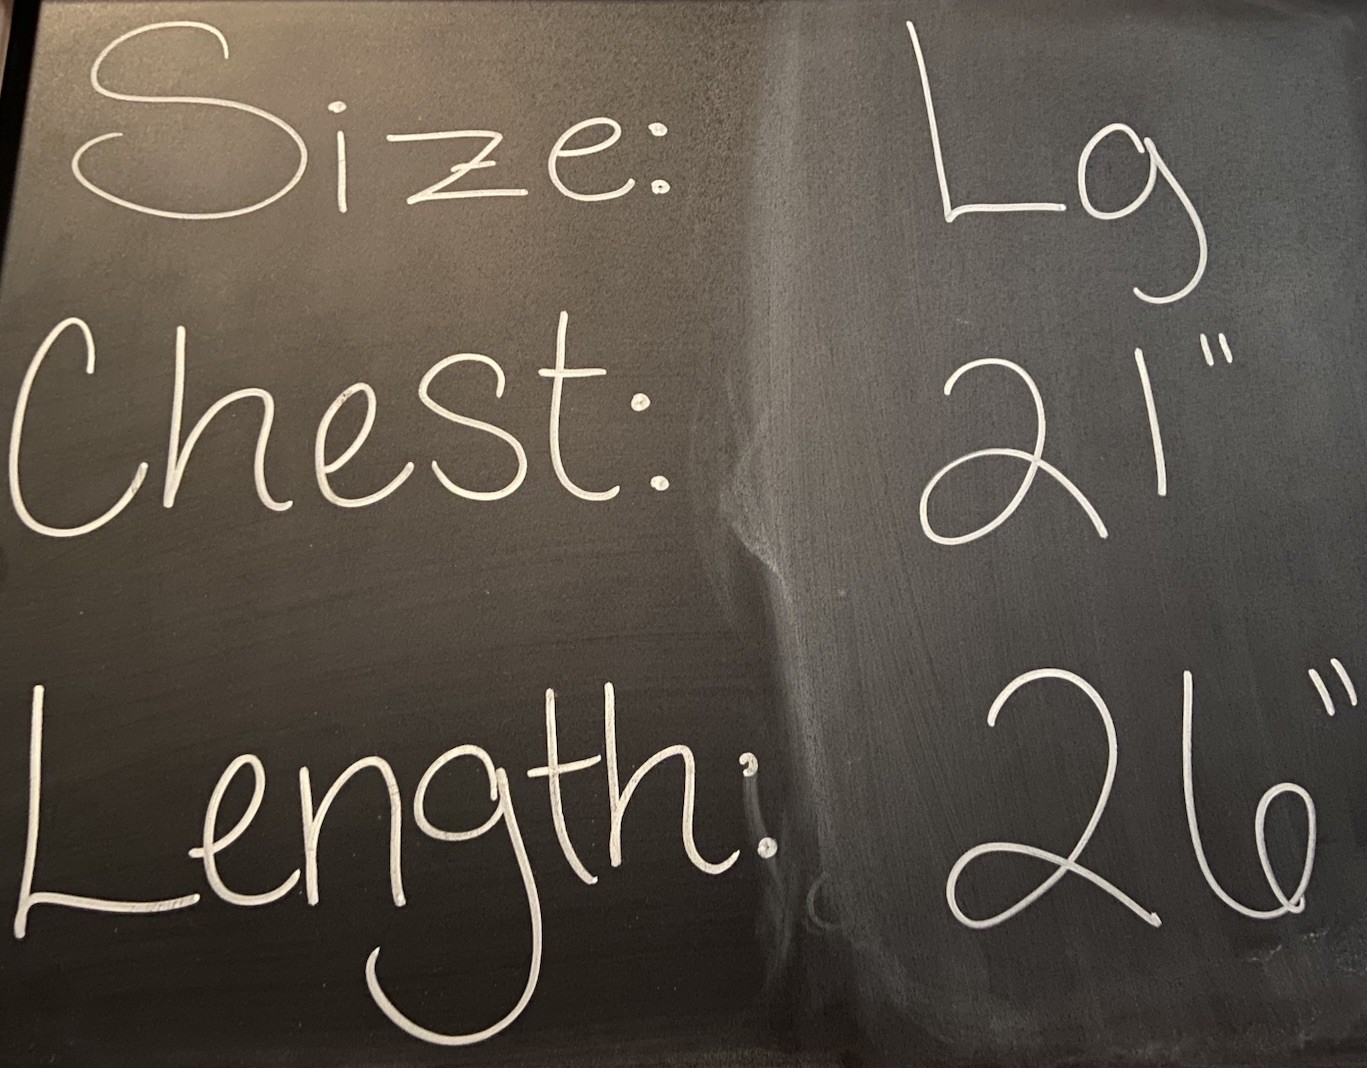 Size: Lg
Chest: 21"
Length: 26"